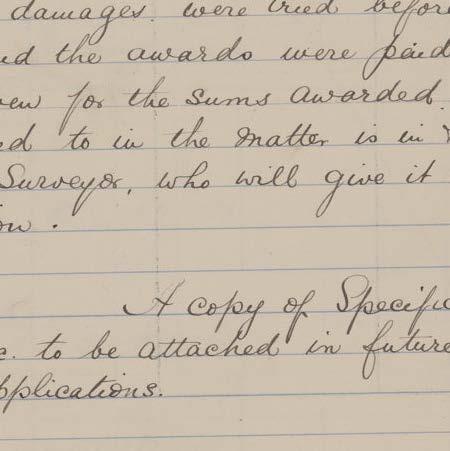 damages. were tried before
nd the awards were paid
ven for the sums awarded.
ed to in the matter is in
Surveyor, who will give it
on.
A copy of Specific
c. to be attached in future
pplications.